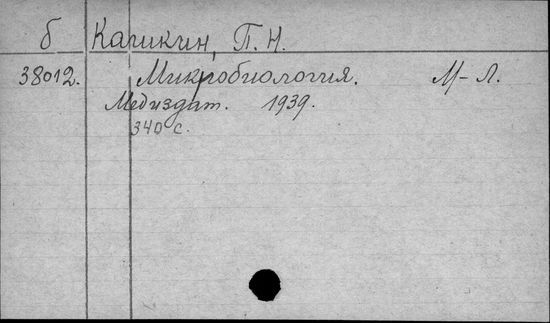 б Кашкин, П. Н.
38012. Микробиология. М-Л.
Медиздат. 1939.
340 с.